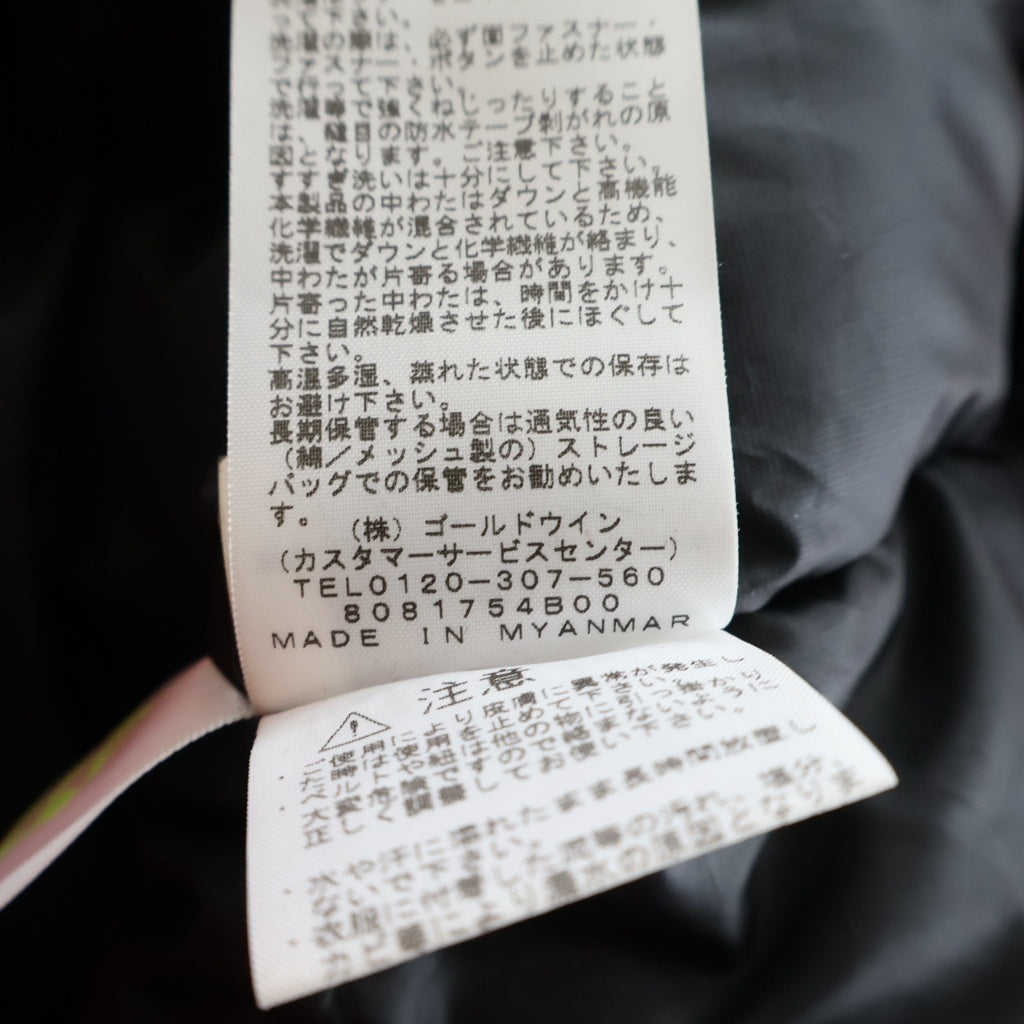 て下さい。
洗濯の際は、必ず面ファスナー・
ファスナー、ボタンを止めた状態
で行って下さい。
洗濯時で強くねじったりすること
は、縫目の防水テープ剥がれの原
因となります。ご注意下さい。
すすぎ洗いは十分にして下さい。
本製品の中わたはダウンと高機能
化学繊維が混合されているため、
洗濯でダウンと化学繊維が絡まり、
中わたが片寄る場合があります。
片寄った中わたは、時間をかけ十
分に自然乾燥させた後にほぐして
下さい。
高温多湿、蒸れた状態での保存は
お避け下さい。
長期保管する場合は通気性の良い
(綿/メッシュ製の)ストレージ
バッグでの保管をお勧めいたしま
す。
(株)ゴールドウイン
(カスタマーサービスセンター)
TEL0120-307-560
8081754B00
MADE IN MYANMAR
注意
・水や汗に濡れたまま長時間放置し
ないで下さい。
・衣服に付着した泥等の汚れ、塩分、
カビ等により漏水の原因となりま